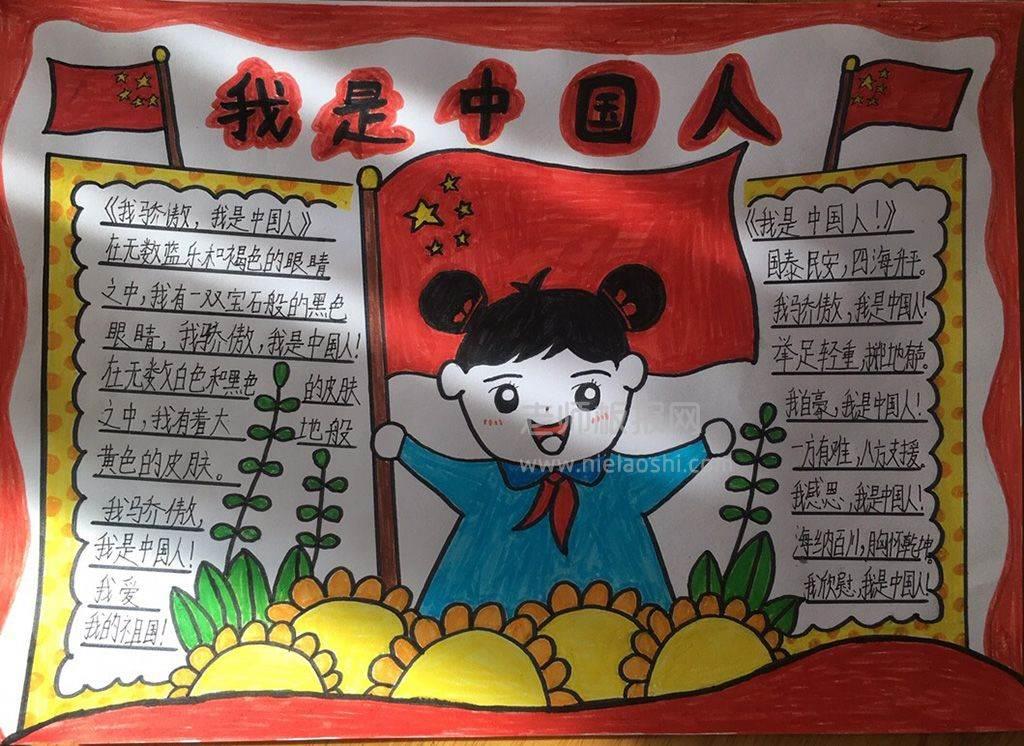 我是中国人
《我骄傲，我是中国人》
在无数蓝色和褐色的眼睛
之中，我有一双宝石般的黑色
眼睛，我骄傲，我是中国人！
在无数白色和黑色的皮肤
之中，我有着大地般
黄色的皮肤。
我骄傲，
我是中国人！
我爱
我的祖国！
《我是中国人！》
国泰民安，四海升平。
我骄傲，我是中国人！
举足轻重，掷地有声。
我自豪，我是中国人！
一方有难，八方支援。
我感恩，我是中国人！
海纳百川，胸怀乾坤。
我欣慰，我是中国人！
老师板报网
www.nielaoshi.com